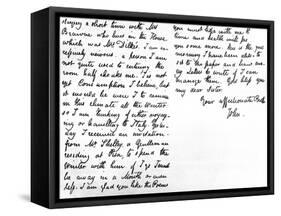 staying a short time with Mr
Brawne who lives in the House
which was Mr Dilke's. I am ex
cessively nervous: a person I am
not quite used to entering the
room half chokes me. 'Tis not
yet Consumption I believe, but
it would be were I to remain
in this climate all the Winter:
so I am thinking of either voyag-
ing or travelling to Italy. Yester-
day I received an invitation
from Mr Shelley, a Gentleman
residing at Pisa, to spend the
Winter with him: if I go I must
be away in a Month or even
less. I am glad you like the Poems
you must hope with me that
time and health will
you some more. This is the first
morning I have been able to
sit to the paper and have many
Letters to write if I can
manage them. God bless you
my dear Sister.
Your affectionate Brother
John